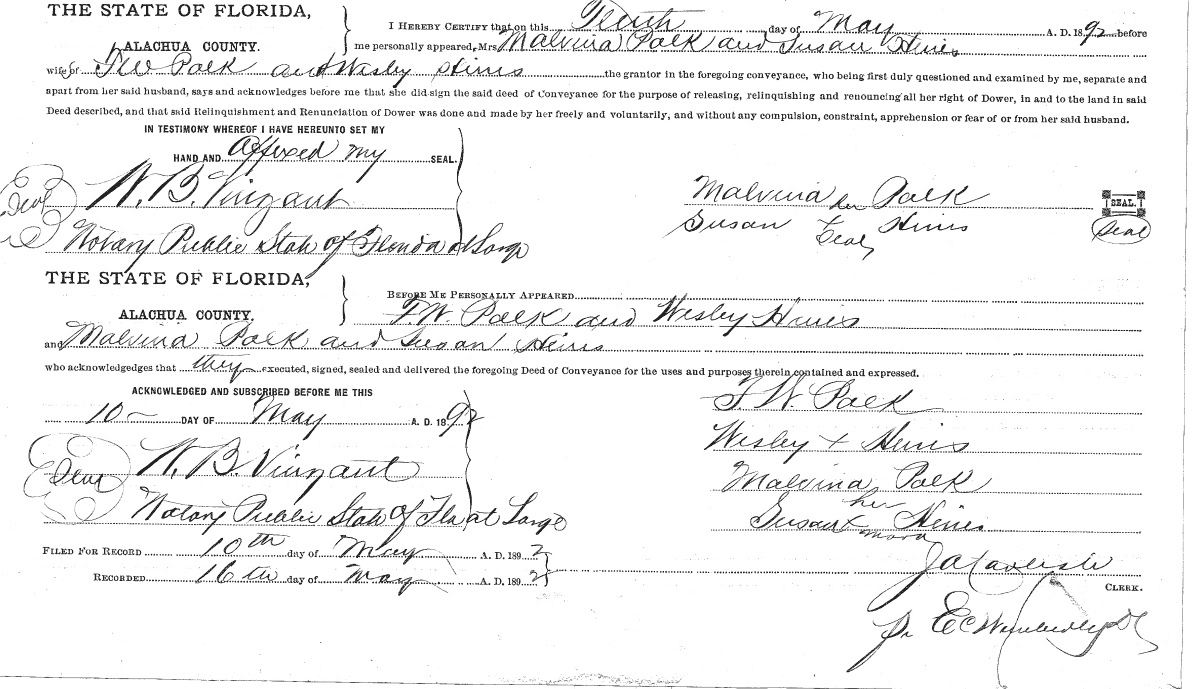 THE STATE OF FLORIDA,
ALACHUA COUNTY.
I HEREBY CERTIFY that on this Tenth day of May A. D. 1892 before
me personally appeared, Mrs Malvina Polk and Susan Hines
wife of T W Polk and Wesley Hines the grantor in the foregoing conveyance, who being first duly questioned and examined by me, separate and
apart from her said husband, says and acknowledges before me that she did sign the said deed of Conveyance for the purpose of releasing, relinquishing and renouncing all her right of Dower, in and to the land in said
Deed described, and that said Relinquishment and Renunciation of Dower was done and made by her freely and voluntarily, and without any compulsion, constraint, apprehension or fear of or from her said husband.
IN TESTIMONY WHEREOF I HAVE HEREUNTO SET MY
HAND AND affixed my SEAL.
Seal N. B. Vinzant
Notary Public State of Florida at Large
Malvina Polk SEAL.
her
Susan + Hines Seal
THE STATE OF FLORIDA,
ALACHUA COUNTY.
BEFORE ME PERSONALLY APPEARED
T. W. Polk and Wesley Hines
and Malvina Polk and Susan Hines
who acknowledgedges that they executed, signed, sealed and delivered the foregoing Deed of Conveyance for the uses and purposes therein contained and expressed.
ACKNOWLEDGED AND SUBSCRIBED BEFORE ME THIS
10 DAY OF May A. D. 1892
Seal N. B. Vinzant
Notary Public State of Fla at Large
T. W. Polk
Wesley + Hines
Malvina Polk
her
Susan + Hines
mark
FILED FOR RECORD 10th day of May A. D. 1892
RECORDED 16th day of May A. D. 1892
J A Carlisle
CLERK.
pr E C Wimberly DC